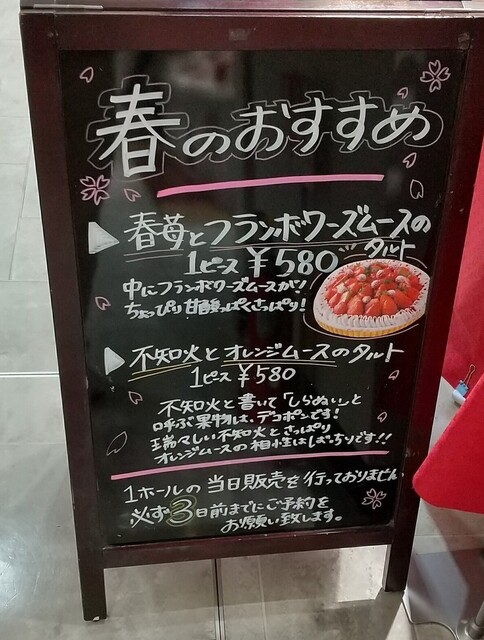 春のおすすめ
春苺とフランボワーズムースの
タルト
1ピース ¥580
中にフランボワーズムースが!
ちょっぴり甘酸っぱくさっぱり!
不知火とオレンジムースのタルト
1ピース ¥580
不知火と書いて「しらぬい」と
呼ぶ果物は、デコポンです!
瑞々しい不知火とさっぱり
オレンジムースの相性はばっちりです!!
1ホールの当日販売を行っておりません
必ず3日前までにご予約を
お願い致します。